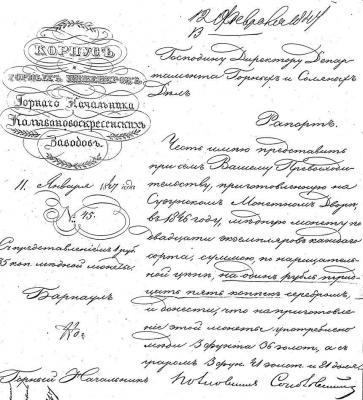 12 Февраля 1847
13
КОРПУСЪ
ГОРНЫХЪ ИНЖЕНЕРОВЪ
Горнаго Начальника
Колывановоскресенскихъ
Заводовъ.
11 Января 1847 года
№ 45.
Съ представленіемъ 1 руб.
35 коп. мѣдной монеты.
Барнаулъ
Господину Директору Депар-
тамента Горныхъ и Соляныхъ
Дѣлъ
Рапортъ.
Честь имѣю представить
при семъ Вашему Превосходи-
тельству, приготовленную на
Сузунскомъ Монетномъ Дворѣ,
въ 1846 году, мѣдную монету по
двадцати экземпляровъ каждаго
сорта, суммою по нарицатель-
ной цѣнѣ, на одинъ рубль трид-
цать пять копѣекъ серебромъ,
и донести, что на приготовле-
ніе этой монеты употреблено
мѣди 8 фунта 36 золот., а съ
угаромъ 8 фун. 41 золот. и 21 долей
Горный Начальникъ Полковникъ